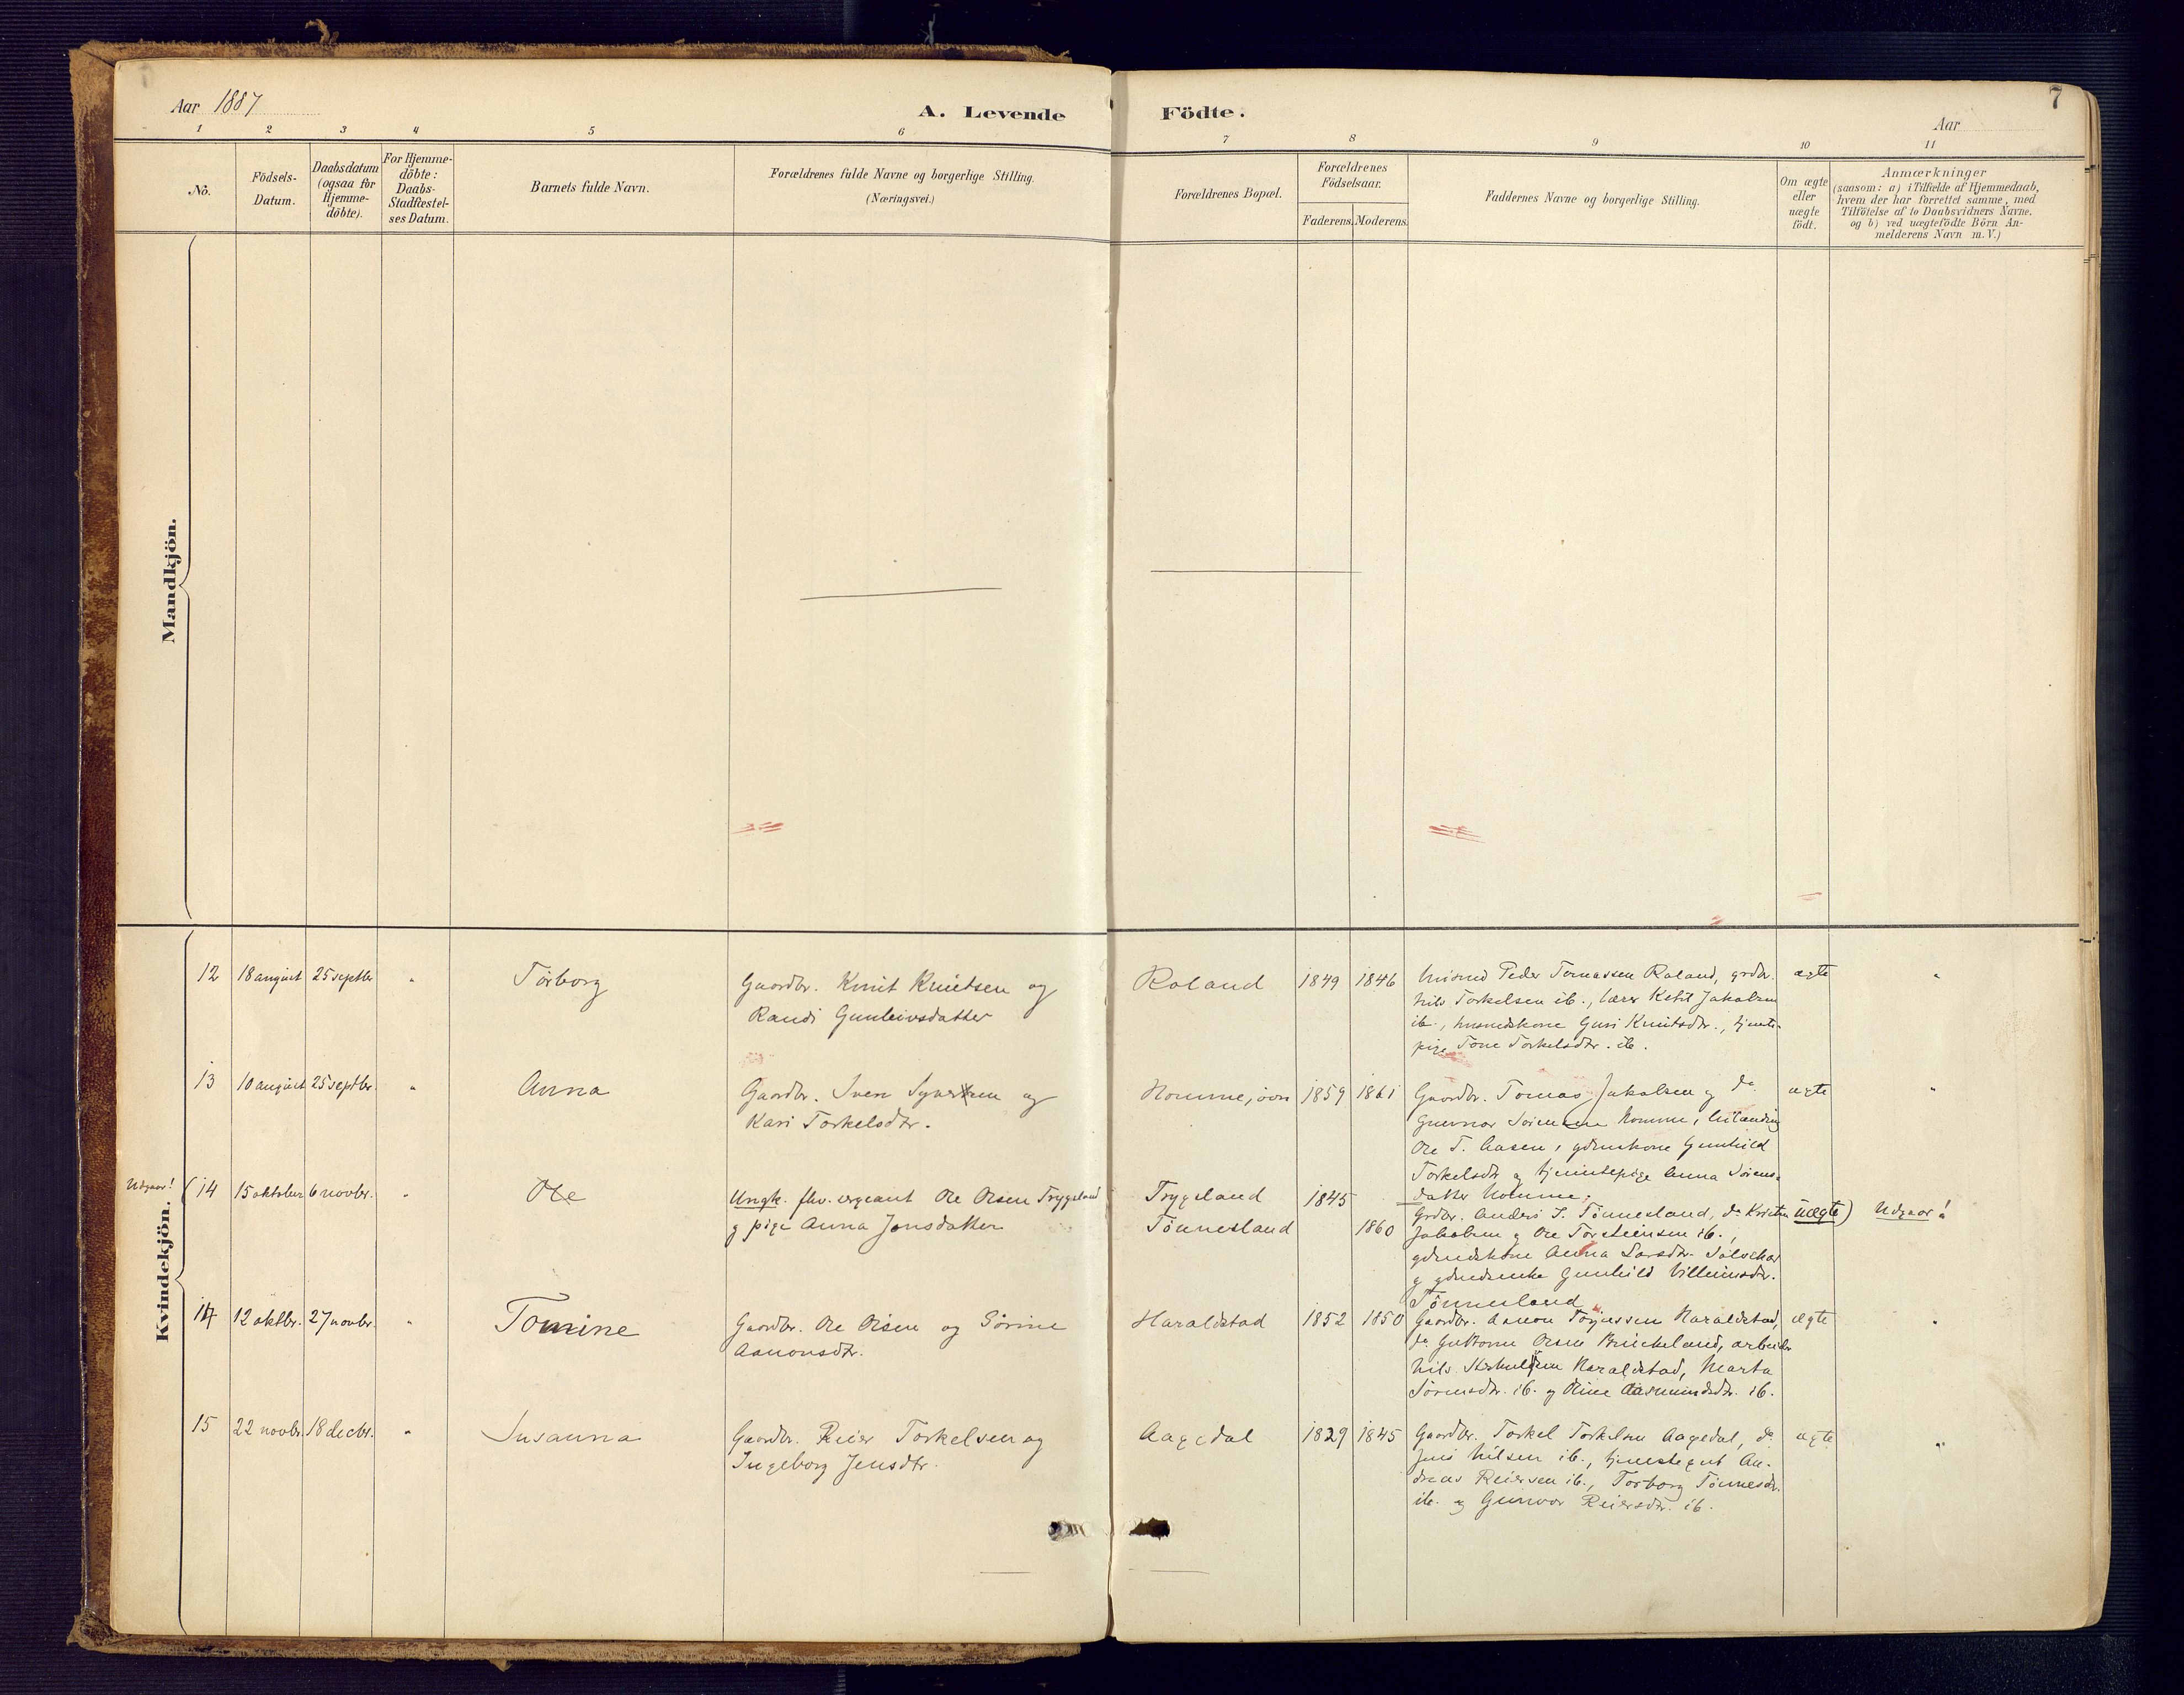 Aar 1887
A. Levende Födte.
7
Aar
1 2 3 4 5 6 7 8 9 10 11
No.
Födsels-
Datum.
Daabsdatum
(ogsaa for
Hjemme-
döbte).
For Hjemme-
döbte:
Daabs-
Stadfæstel-
ses Datum.
Barnets fulde Navn.
Forældrenes fulde Navne og borgerlige Stilling.
(Næringsvei.)
Forældrenes Bopæl.
Forældrenes
Födselsaar.
Faderens. Moderens.
Faddernes Navne og borgerlige Stilling.
Om ægte
eller
uægte
födt.
Anmærkninger
(saasom: a) i Tilfælde af Hjemmedaab,
hvem der har forrettet samme, med
Tilföielse af to Daabsvidners Navne.
og b) ved uægtefödte Börn An-
melderens Navn m.V.)
Mandkjön.
Kvindekjön.
12 18 august 25 septbr " Torborg
Gaardbr. Knut Knutsen og
Randi Gunleivsdatter
Roland 1849 1846
Husmd Peder Tomassen Roland, grdbr.
Nils Torkelsen ib., lærer Ketil Jakobsen
ib., husmdskone Guri Knutsdtr., tjeneste-
pige Tone Torkelsdtr. ib.
ægte "
13 10 august 25 septbr. " Anna
Gaardbr. Sven Syversen og
Kari Torkelsdtr.
Homme, övre 1859 1861
Gaardbr. Tomas Jakobsen og do
Gunnar Homme,
Ole T. Aasen, gdmskone Gunhild
Torkelsdtr og tjenestepige Anna Sørens-
datter Homme.
ægte "
Udgaar! (14 15 oktober 6 novbr. " Ole
Ungk. fhv. sergeant Ole Olsen Trygsland
og pige Anna Jensdatter
Trygsland 1845
Tönnesland 1860
Grdbr. Anders S. Tönnesland, do Kristen
Jakobsen og Ole Torsteinsen ib.,
gdmdskone Anna Larsdtr.
og gdmdsenke Gunhild Villumsdtr.
Tönnesland
uægte) Udgaar!
14 12 oktbr. 27 novbr. " Tomine
Gaardbr. Ole Olsen og Sörine
Aanonsdtr.
Haraldstad 1852 1850
Gaardbr. Aanon Torjussen Haraldstad,
do Guttorm Olsen Brückeland, arbeider
Nils Haraldstad, Marta
Sörensdtr. ib. og Oline Aasmundsdtr. ib.
ægte "
15 22 novbr. 18 decbr. " Susanna
Gaardbr. Reier Torkelsen og
Ingeborg Jensdtr.
Aagedal 1829 1845
Gaardbr. Torkel Torkelsen Aagedal, do
Jens Nilsen ib., tjenestegut An-
dreas Reiersen ib., Torborg Tönnesdtr.
ib. og Gunvor Reiersdtr. ib.
ægte "